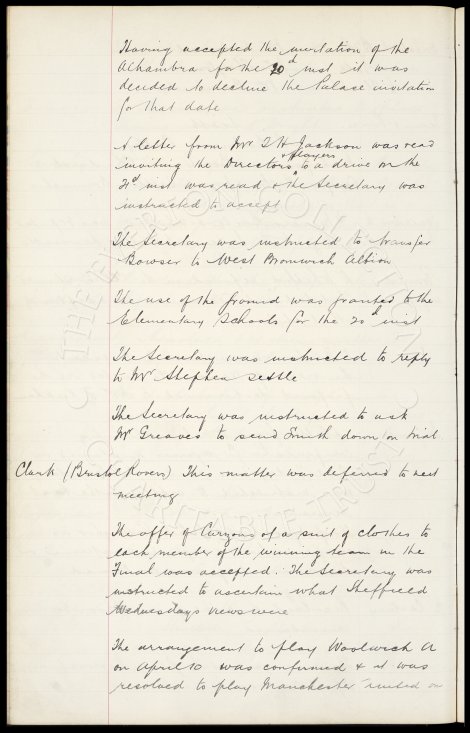 Having accepted the invitation of the
Alhambra for the 20th inst it was
decided to decline the Palace invitation
for that date
A letter from Mr J H Jackson was read
inviting the Directors & players to a drive on the
21st inst was read & the Secretary was
instructed to accept
The Secretary was instructed to transfer
Bowser to West Bromwich Albion
The use of the ground was granted to the
Elementary Schools for the 20th inst
The Secretary was instructed to reply
to Mr Stephen Settle
The Secretary was instructed to ask
Mr Greaves to send Smith down on trial
Clark (Bristol Rovers) This matter was deferred to next
meeting
The offer of Curzons of a suit of clothes to
each member of the winning team in the
Final was accepted. The Secretary was
instructed to ascertain what Sheffield
Wednesdays views were
The arrangement to play Woolwich A
on April 10 was confirmed & it was
resolved to play Manchester United on
THE EVERTON COLLECTION
CHARITABLE TRUST